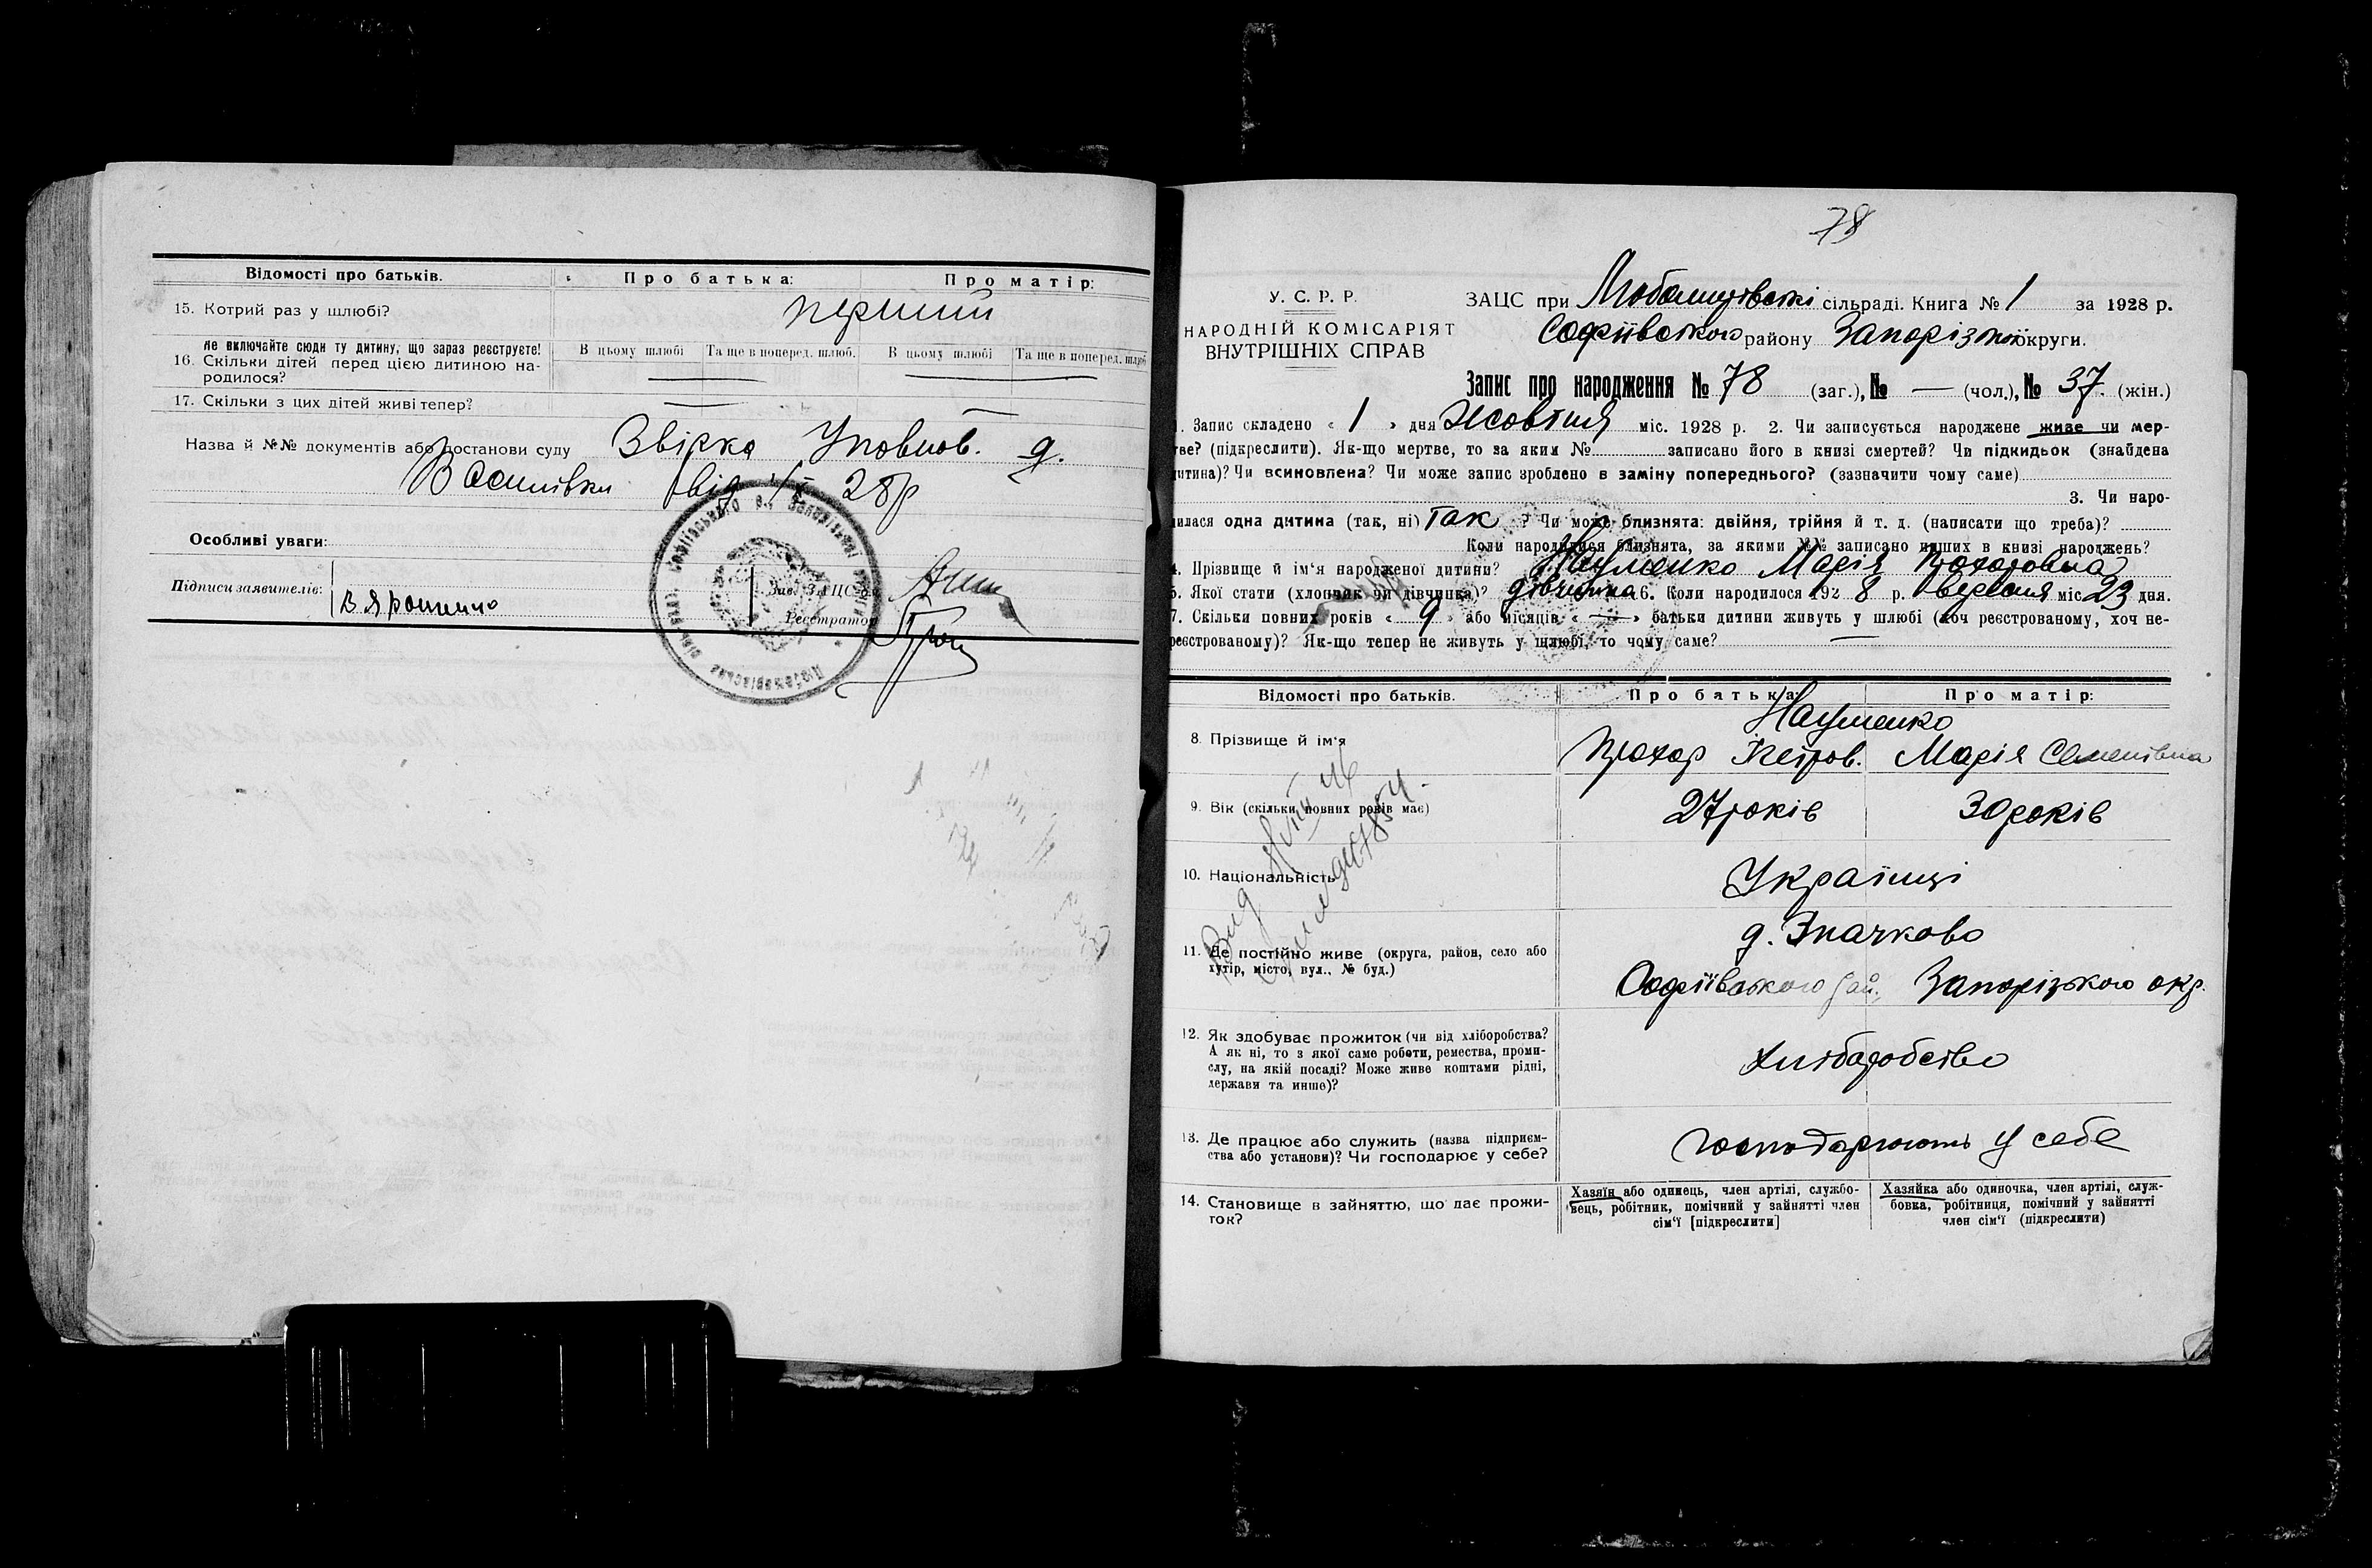 Відомості про батьків. Про батька: Про матір:
15. Котрий раз у шлюбі? перший
Не включайте сюди ту дитину, що зараз реєструєте!
16. Скільки дітей перед цією дитиною на-
родилося?
В цьому шлюбі Та ще в поперед. шлюб. В цьому шлюбі Та ще в поперед. шлюб
17. Скільки з цих дітей живі тепер? —
Назва й №№ документів або постанови суду Звірка Уповнов. д.
Василівки від 1/X 28р
Особливі уваги:
Підписи заявителів: В Ярошенко
Зав. ЗАЦС'ом
Реєстратор
78
У. С. Р. Р.
НАРОДНІЙ КОМІСАРІЯТ
ВНУТРІШНІХ СПРАВ
ЗАЦС при сільраді. Книга № 1 за 1928 р.
Софіївського району Запорізької округи.
Запис про народження № 78 (заг.), № — (чол.), № 37. (жін.)
1. Запис складено « 1 » дня Жовтня міс. 1928 р. 2. Чи записується народжене живе чи мер-
тве? (підкреслити). Як-що мертве, то за яким № записано його в книзі смертей? Чи підкидьок (знайдена
дитина)? Чи всиновлена? Чи може запис зроблено в заміну попереднього? (зазначити чому саме)
3. Чи наро-
дилася одна дитина (так, ні) Так ? Чи може близнята: двійня, трійня й т. д. (написати що треба)?
Коли народилися близнята, за якими №№ записано инших в книзі народжень?
4. Прізвище й ім'я народженої дитини? Науменко Марія Прохоровна
5. Якої стати (хлопчик чи дівчинка)? дівчинка 6. Коли народилося 192 8 р. Вересня міс. 23 дня.
7. Скільки повних років « 9 » або місяців « — » батьки дитини живуть у шлюбі (хоч реєстрованому, хоч не-
реєстрованому)? Як-що тепер не живуть у шлюбі, то чому саме? —
Відомості про батьків. Про батька: Про матір:
Науменко
8. Прізвище й ім'я Прохор Петров. Марія Семенівна
9. Вік (скільки повних років має) 27 років 30 років
10. Національність Українці
11. Де постійно живе (округа, район, село або
хутір, місто, вул., № буд.)
д. Значково
Софіївського рай. Запорізького окр.
12. Як здобуває прожиток (чи від хліборобства?
А як ні, то з якої саме роботи, ремества, проми-
слу, на якій посаді? Може живе коштами рідні,
держави та инше)?
Хліборобство
13. Де працює або служить (назва підприєм-
ства або установи)? Чи господарює у себе?
господарюють у себе
14. Становище в зайняттю, що дає прожи-
ток?
Хазяїн або одинець, член артілі, службо-
вець, робітник, помічний у зайнятті член
сім'ї [підкреслити]
Хазяйка або одиночка, член артілі, служ-
бовка, робітниця, помічний у зайнятті
член сім'ї (підкреслити)